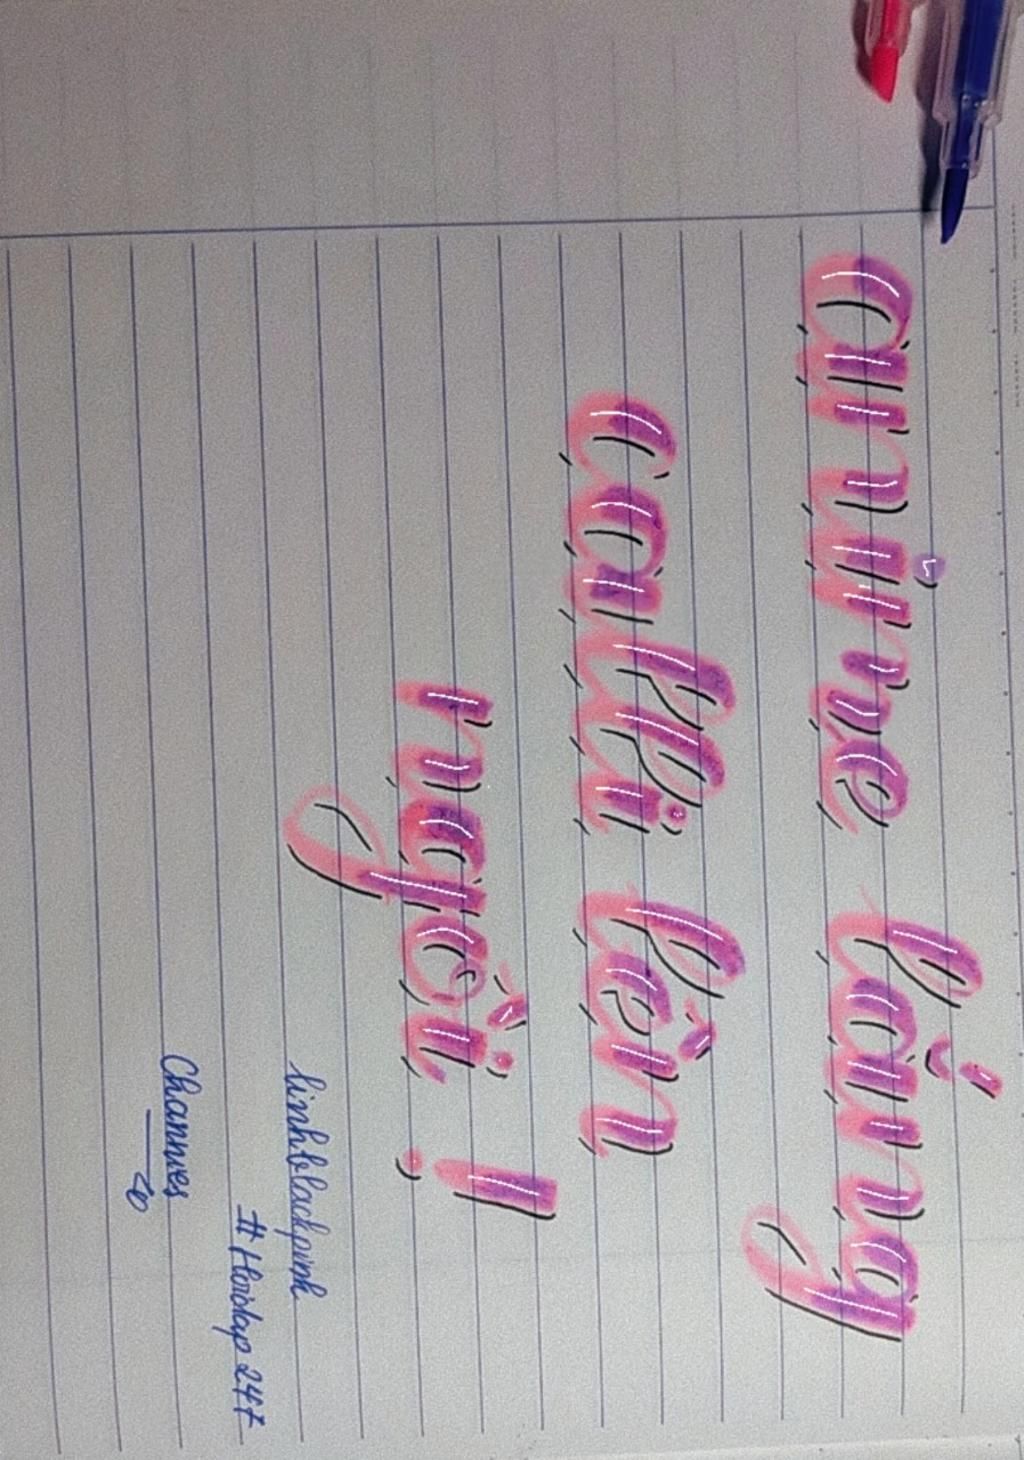 anime lắng
calli lên
ngôi !
linhblackpink
# Hoidap 247
Channies